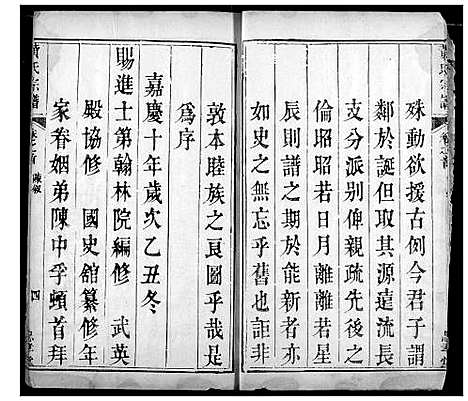 殊動欲援古例今君子謂
鄰於誕但其源遠流長
支分派別俾親疏先後之
倫昭昭若日月離離若星
辰則譜之期於敦者亦
如史之無忘乎舊也詎非
敦本睦族之良圖乎哉是
為序
嘉慶十年歲次乙丑冬
賜進士第翰林院編修 武英
殿協修 國史舘纂修年
家眷姻弟陳中孚頓首拜
黃氏宗譜 卷之首 陳叙 四